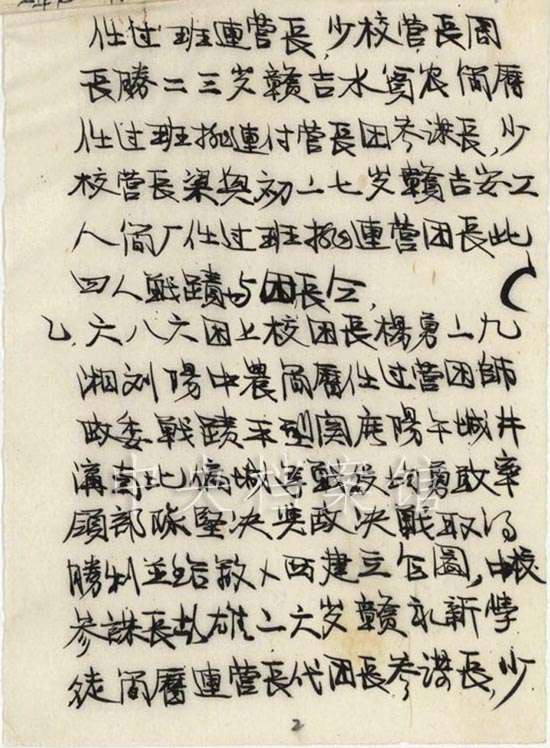 任过班連营長，少校营長周
長勝二三岁贛吉水貧农简曆
任过班排連付营長团参謀長，少
校营長梁興初二七岁贛吉安工
人简厂任过班排連营团長此
四人戰蹟与团長仝，
乙、六八六团上校团長楊勇二九
湘刘陽中農简曆任过营团師
政委戰蹟平型関庱陽午城井
溝
中央档案馆
等戰役均勇敢率
領部隊坚决
决戰取得
勝利並给敌人
建立
，中校
参謀長彭雄二六岁贛永新学
徒简曆連营長代团長参謀長，少
2